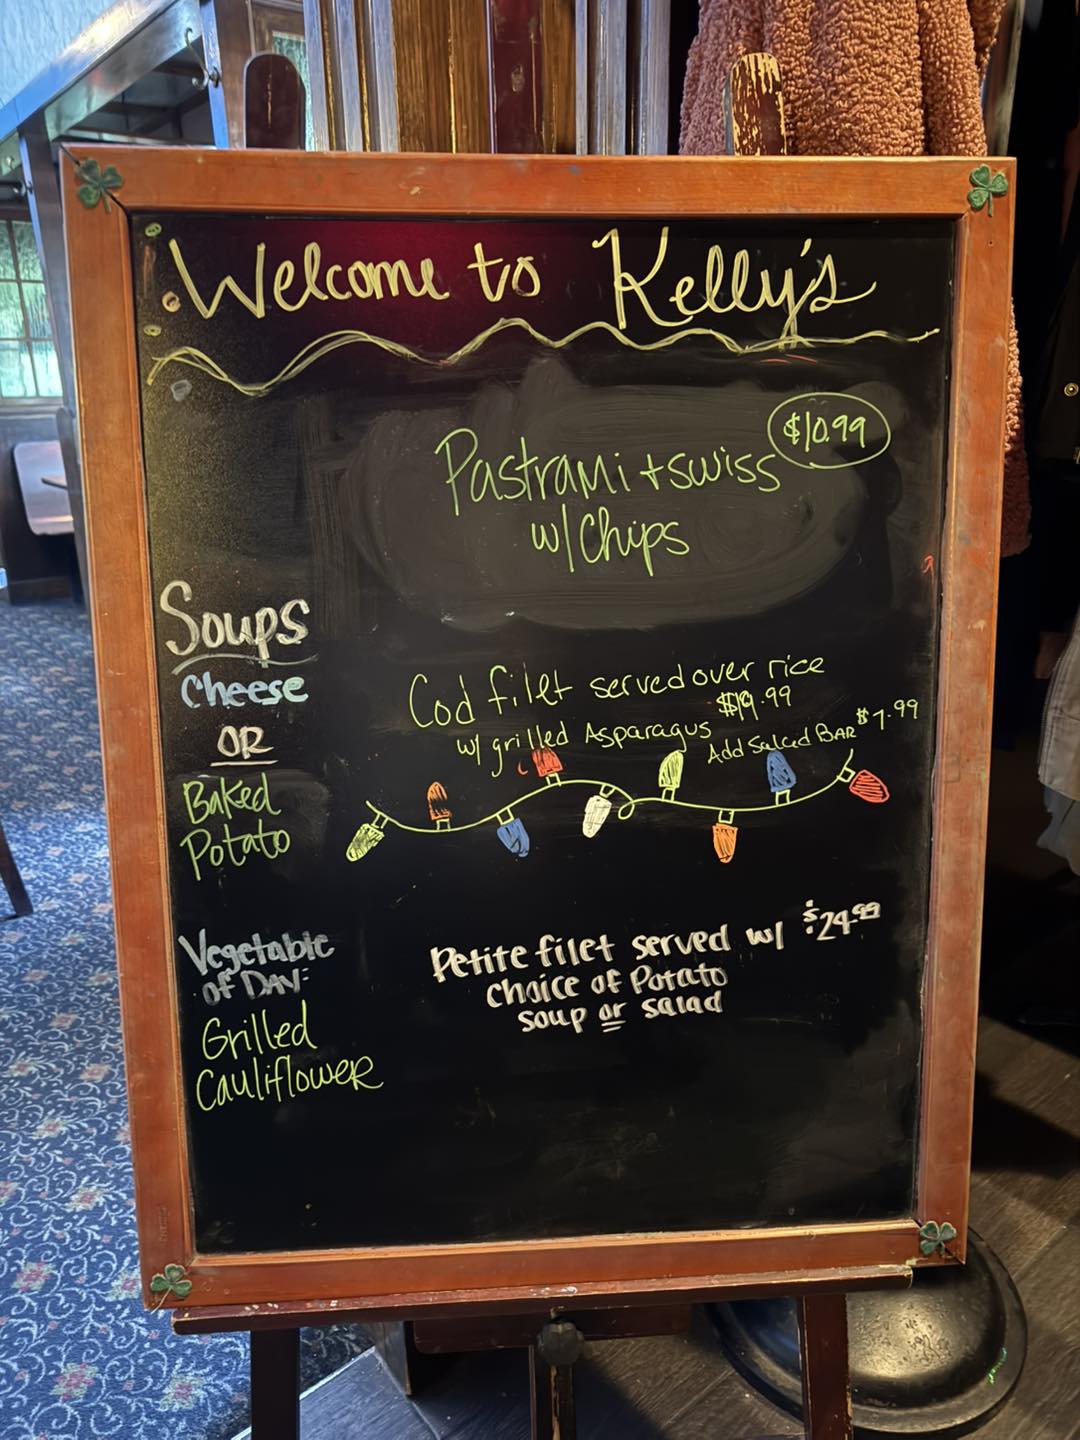 Welcome to Kelly's
$10.99
Pastrami + swiss
w/ Chips
Soups
Cheese
OR
Baked
Potato
Cod filet served over rice
w/ grilled Asparagus $19.99
Add Salad BAR $7.99
Vegetable
of DAY:
Grilled
Cauliflower
Petite filet served w/ $24.99
choice of Potato
soup or salad